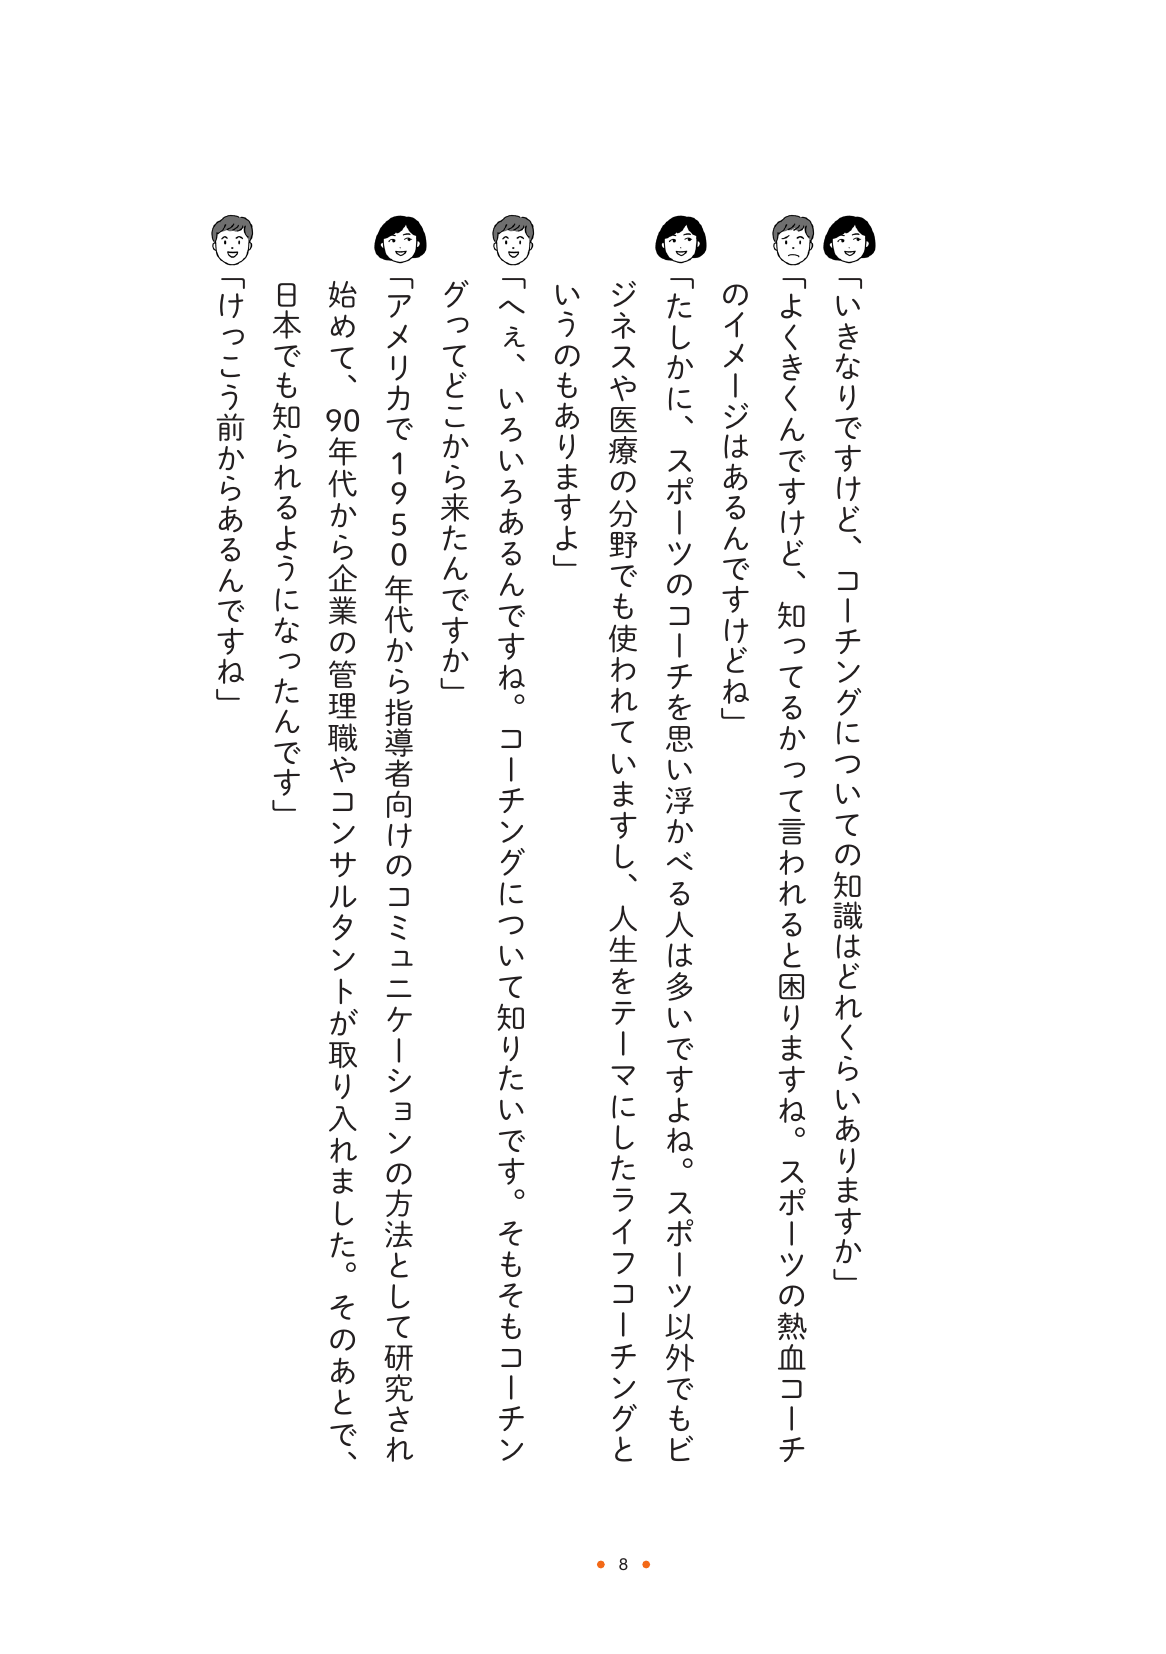 「いきなりですけど、コーチングについての知識はどれくらいありますか」
「よくきくんですけど、知ってるかって言われると困りますね。スポーツの熱血コーチ
のイメージはあるんですけどね」
「たしかに、スポーツのコーチを思い浮かべる人は多いですよね。スポーツ以外でもビ
ジネスや医療の分野でも使われていますし、人生をテーマにしたライフコーチングと
いうのもありますよ」
「へぇ、いろいろあるんですね。コーチングについて知りたいです。そもそもコーチン
グってどこから来たんですか」
「アメリカで1950年代から指導者向けのコミュニケーションの方法として研究され
始めて、90年代から企業の管理職やコンサルタントが取り入れました。そのあとで、
日本でも知られるようになったんです」
「けっこう前からあるんですね」
8